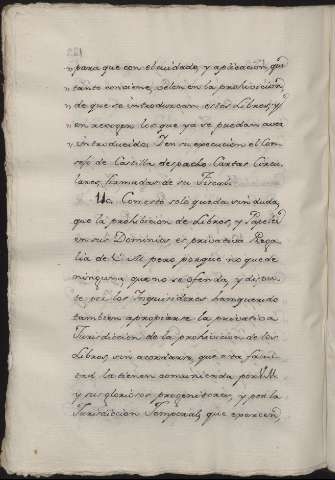 para que con el cuidado, y aplicacion, qe
tanto conviene, celen en la prohivicion,
de que se introduzcan estos Libros, y
en recoger los que ya se puedan aver
introducido. Y en su execucion el Con-
sejo de Castilla despacho Cartas Circu-
lares, firmadas de su Fiscal.
Con esto solo queda sin duda,
que la prohibicion de Libros, y Papeles
en sus Dominios es privativa Rega-
lia de V. M. pero porque no quede
ninguna, que no se ofenda, y dispu-
te por los Inquisidores han querido
tambien apropiarse la privativa
Jurisdiccion de la prohivicion de los
Libros sin acordarse, que esta facul-
tad la tienen comunicada por V. M.
y sus gloriosos progenitores, y por la
Jurisdiccion Temporal, que exercen